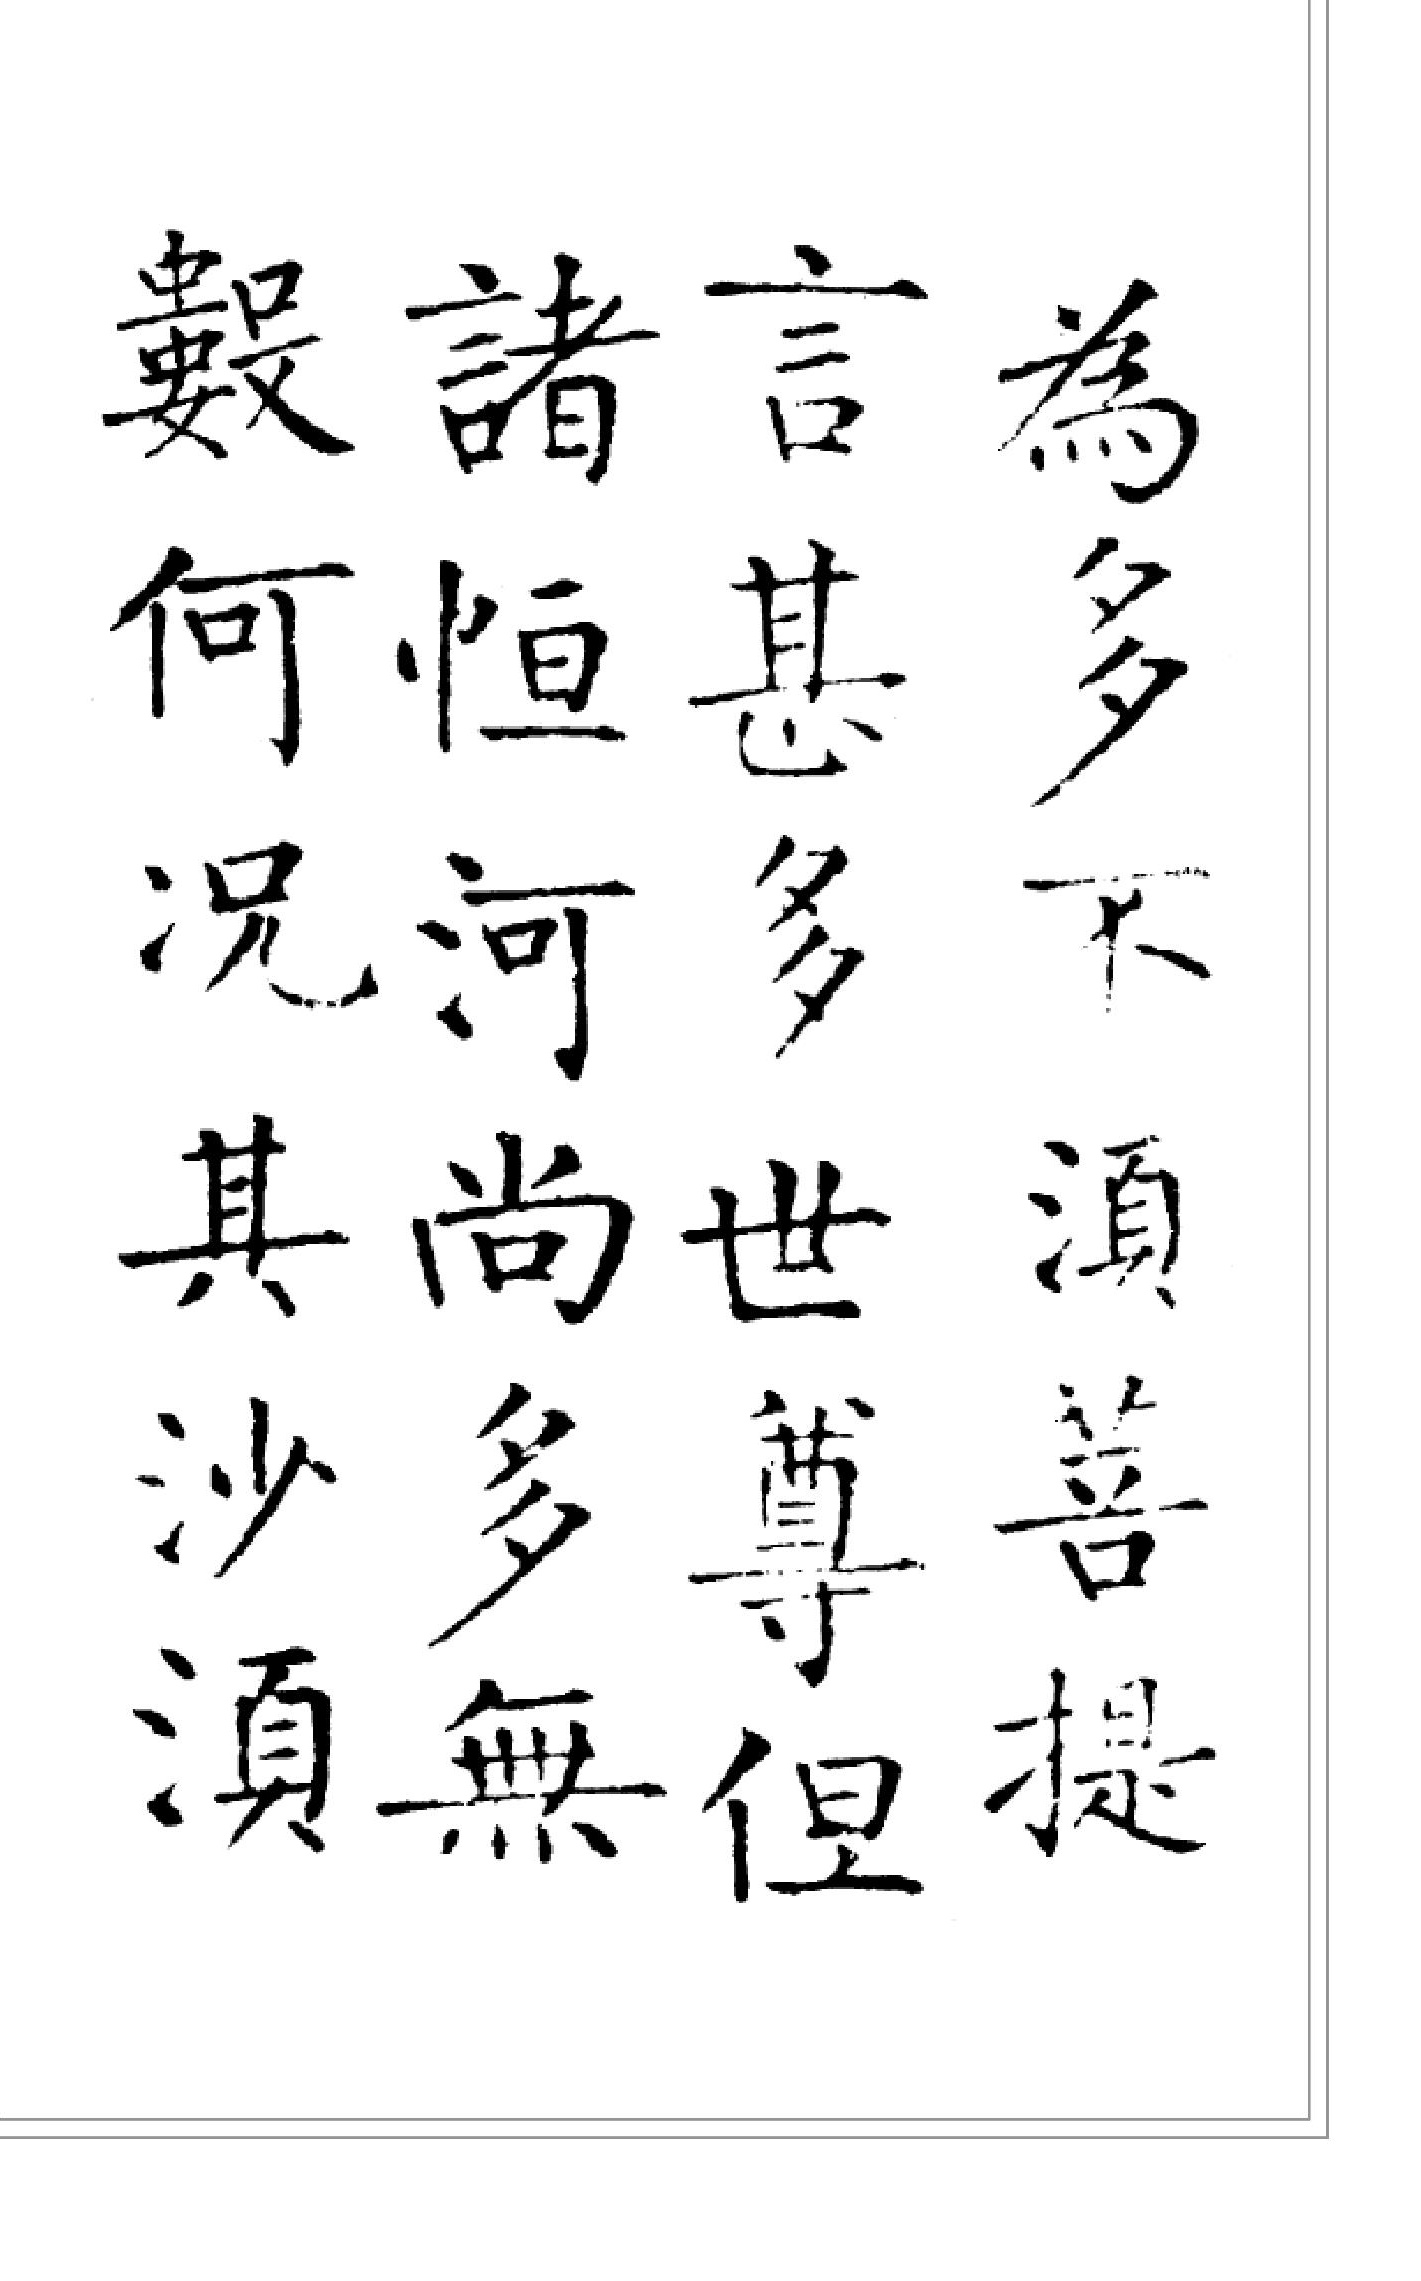 為多不湏菩提
言甚多世尊但
諸恒河尚多無
數何况其沙湏